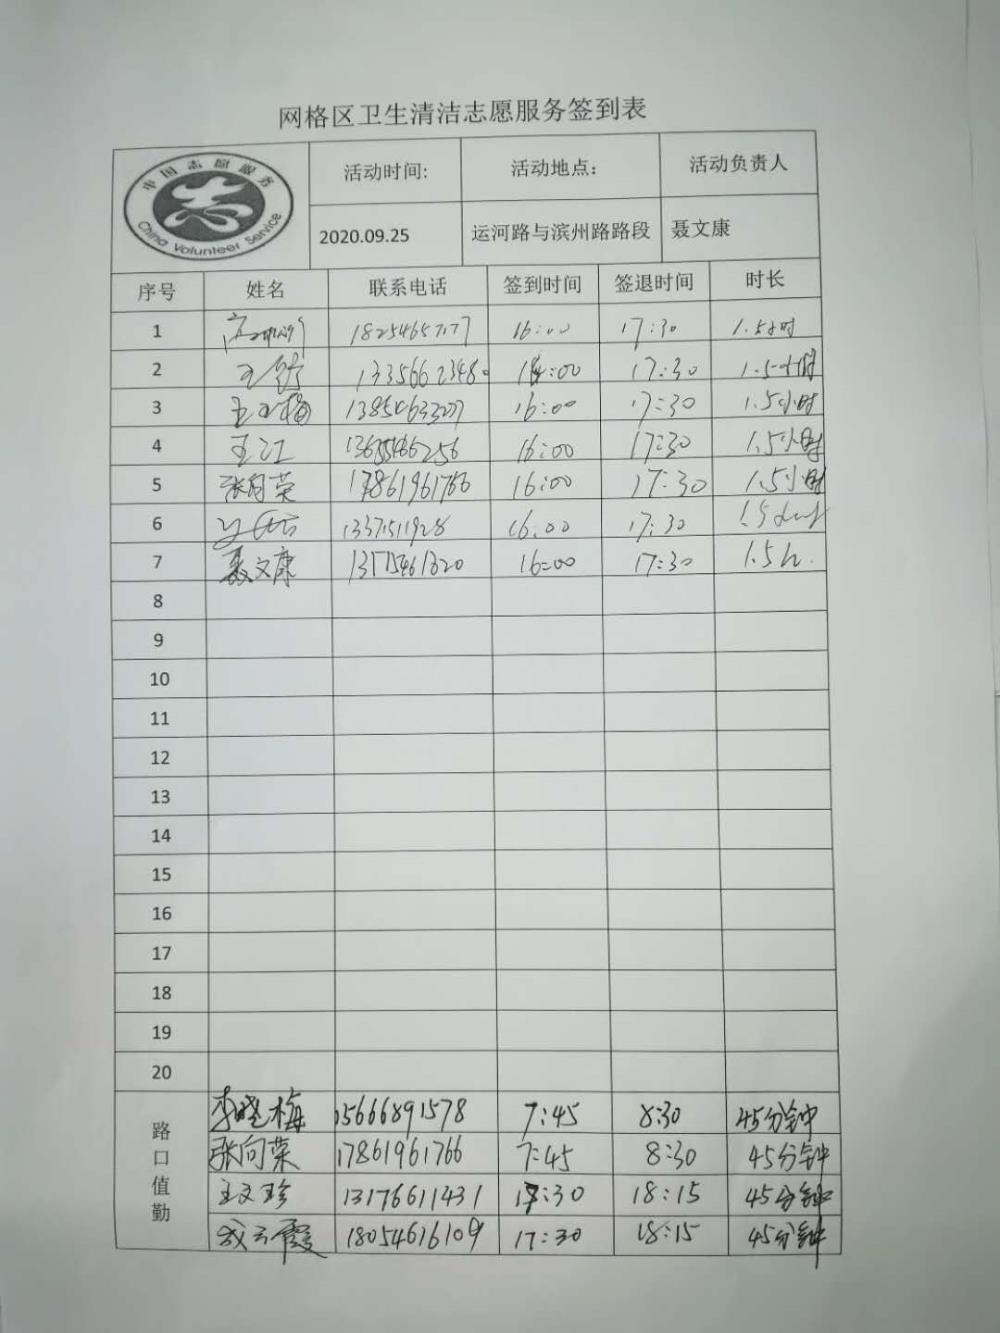 网格区卫生清洁志愿服务签到表
中国志愿服务
China Volunteer Service
活动时间: 活动地点： 活动负责人
2020.09.25 运河路与滨州路路段 聂文康
序号 姓名 联系电话 签到时间 签退时间 时长
1 16:00 17:30 1.5小时
2 16:00 17:30 1.5小时
3 王玉梅 16:00 17:30 1.5小时
4 王江 16:00 17:30 1.5小时
5 张向荣 17861961766 16:00 17:30 1.5小时
6 16:00 17:30 1.5小时
7 聂文康 16:00 17:30 1.5h.
8
9
10
11
12
13
14
15
16
17
18
19
20
路口值勤
李晓梅 15666891578 7:45 8:30 45分钟
张向荣 17861961766 7:45 8:30 45分钟
王文珍 13176611431 17:30 18:15 45分钟
18054616109 17:30 18:15 45分钟